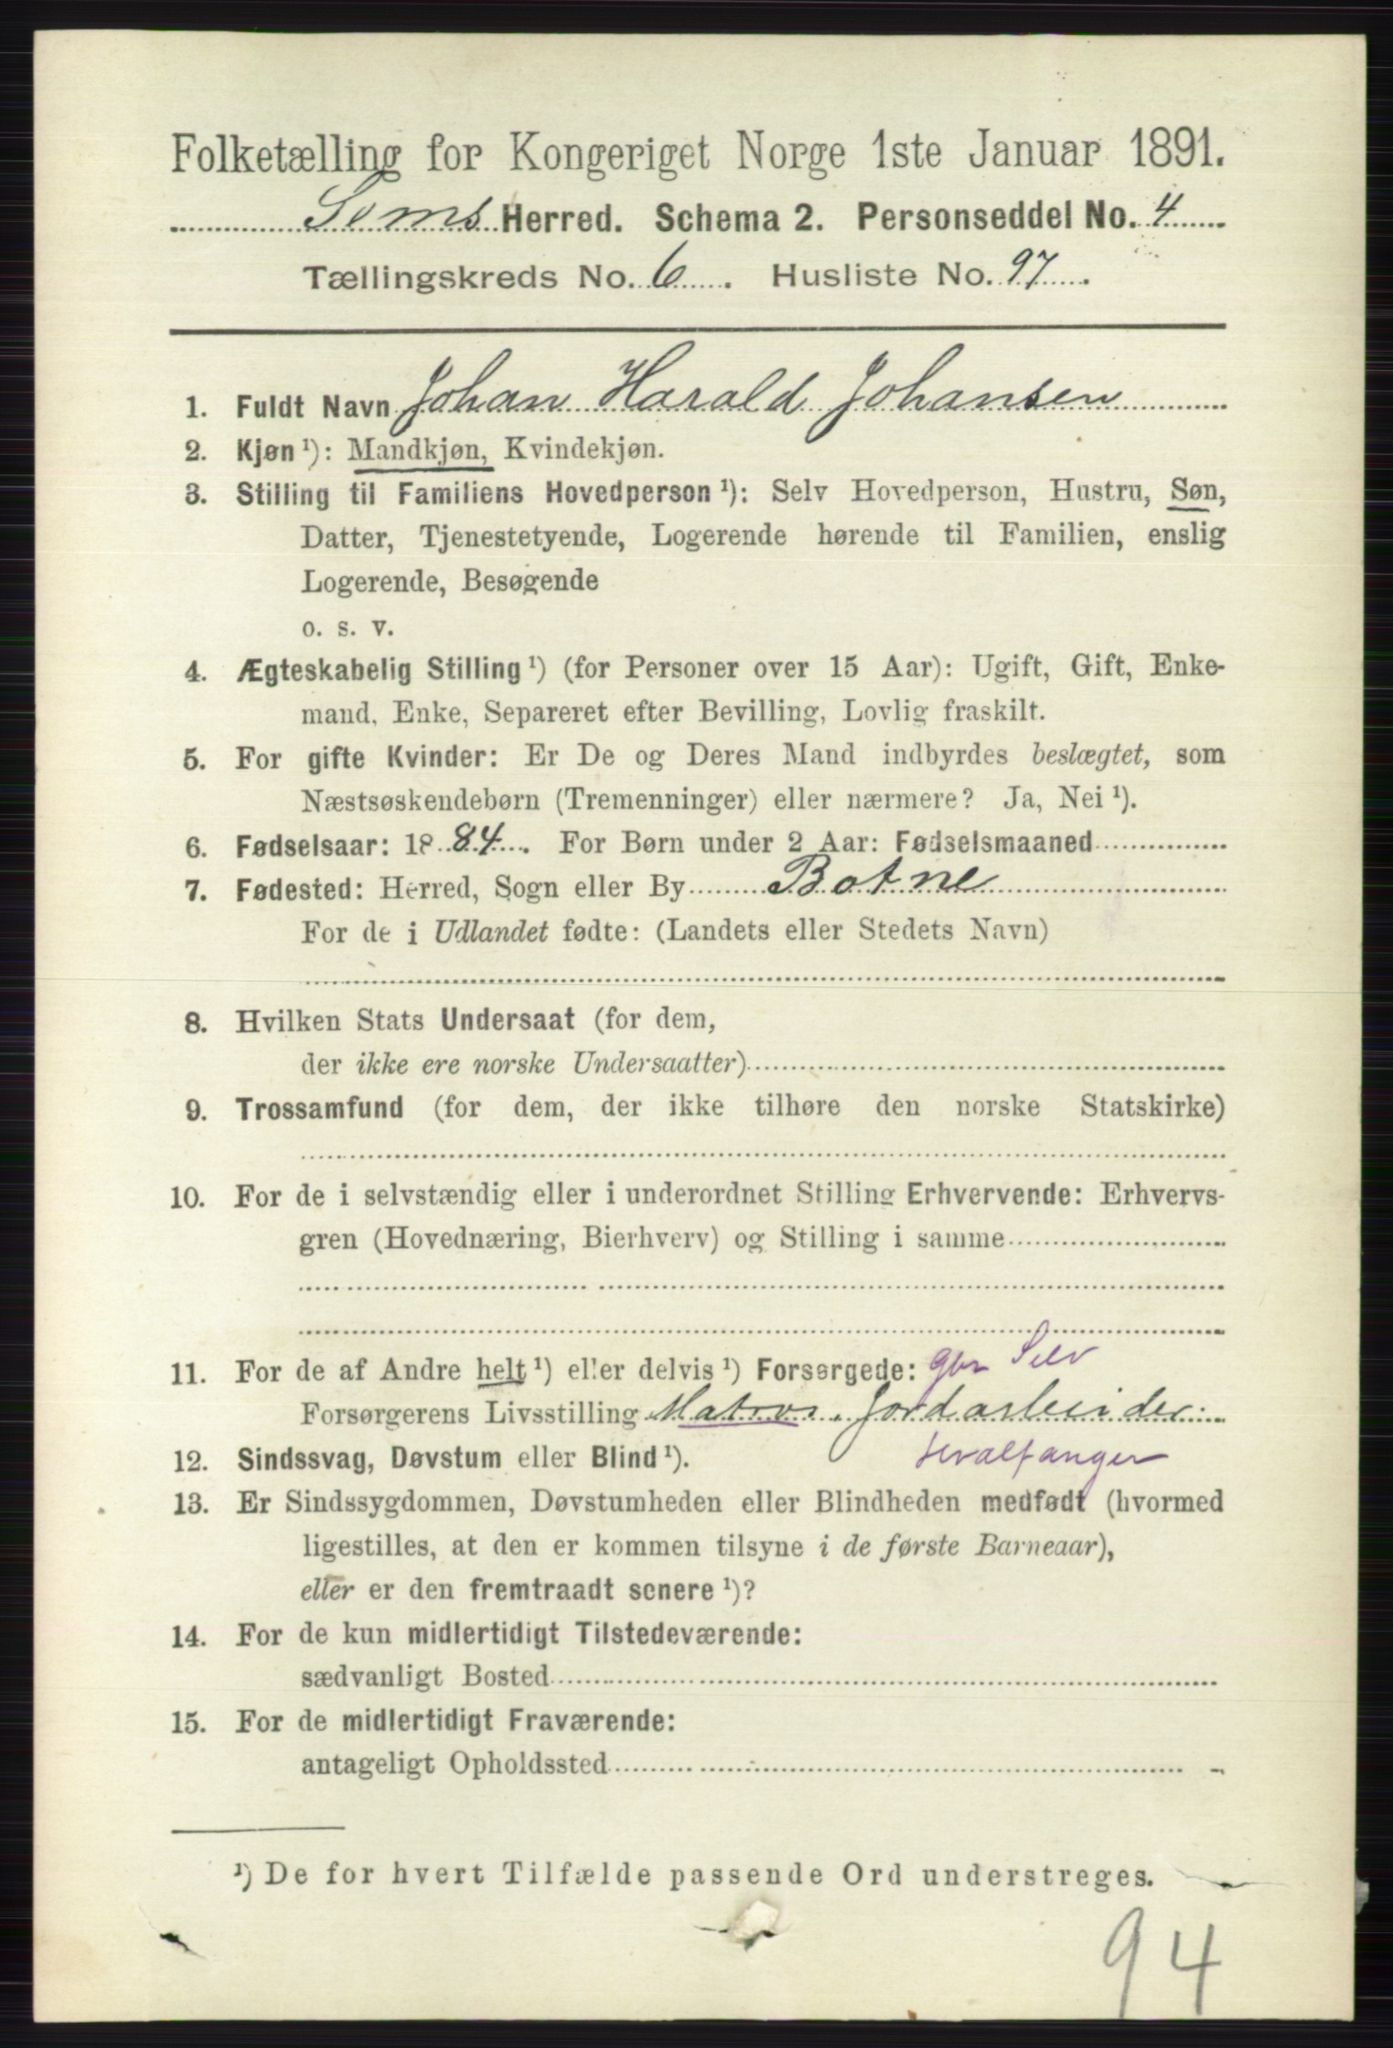 Folketælling for Kongeriget Norge 1ste Januar 1891.
Sems Herred. Schema 2. Personseddel No. 4
Tællingskreds No. 6. Husliste No. 97.
1. Fuldt Navn Johan Harald Johansen
2. Kjøn ¹): Mandkjøn, Kvindekjøn.
3. Stilling til Familiens Hovedperson ¹): Selv Hovedperson, Hustru, Søn,
Datter, Tjenestetyende, Logerende hørende til Familien, enslig
Logerende, Besøgende
o. s. v.
4. Ægteskabelig Stilling ¹) (for Personer over 15 Aar): Ugift, Gift, Enke-
mand, Enke, Separeret efter Bevilling, Lovlig fraskilt.
5. For gifte Kvinder: Er De og Deres Mand indbyrdes beslægtet, som
Næstsøskendebørn (Tremenninger) eller nærmere? Ja, Nei ¹).
6. Fødselsaar: 1884. For Børn under 2 Aar: Fødselsmaaned
7. Fødested: Herred, Sogn eller By Botne
For de i Udlandet fødte: (Landets eller Stedets Navn)
8. Hvilken Stats Undersaat (for dem,
der ikke ere norske Undersaatter)
9. Trossamfund (for dem, der ikke tilhøre den norske Statskirke)
10. For de i selvstændig eller i underordnet Stilling Erhvervende: Erhvervs-
gren (Hovednæring, Bierhverv) og Stilling i samme
11. For de af Andre helt ¹) eller delvis ¹) Forsørgede: gbr Selv
Forsørgerens Livsstilling Matros. Jordarbeider
12. Sindssvag, Døvstum eller Blind ¹). Hvalfanger
13. Er Sindssygdommen, Døvstumheden eller Blindheden medfødt (hvormed
ligestilles, at den er kommen tilsyne i de første Barneaar),
eller er den fremtraadt senere ¹)?
14. For de kun midlertidigt Tilstedeværende:
sædvanligt Bosted
15. For de midlertidigt Fraværende:
antageligt Opholdssted
¹) De for hvert Tilfælde passende Ord understreges.
94